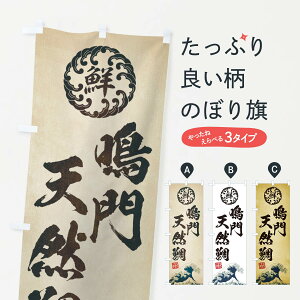 たっぷり
良い柄
のぼり旗
やったね
えらべる3タイプ
鮮
鳴門
天然鯛
A
B
C
鮮
鳴門
天然鯛
鮮
鳴門
天然鯛
鮮
鳴門
天然鯛